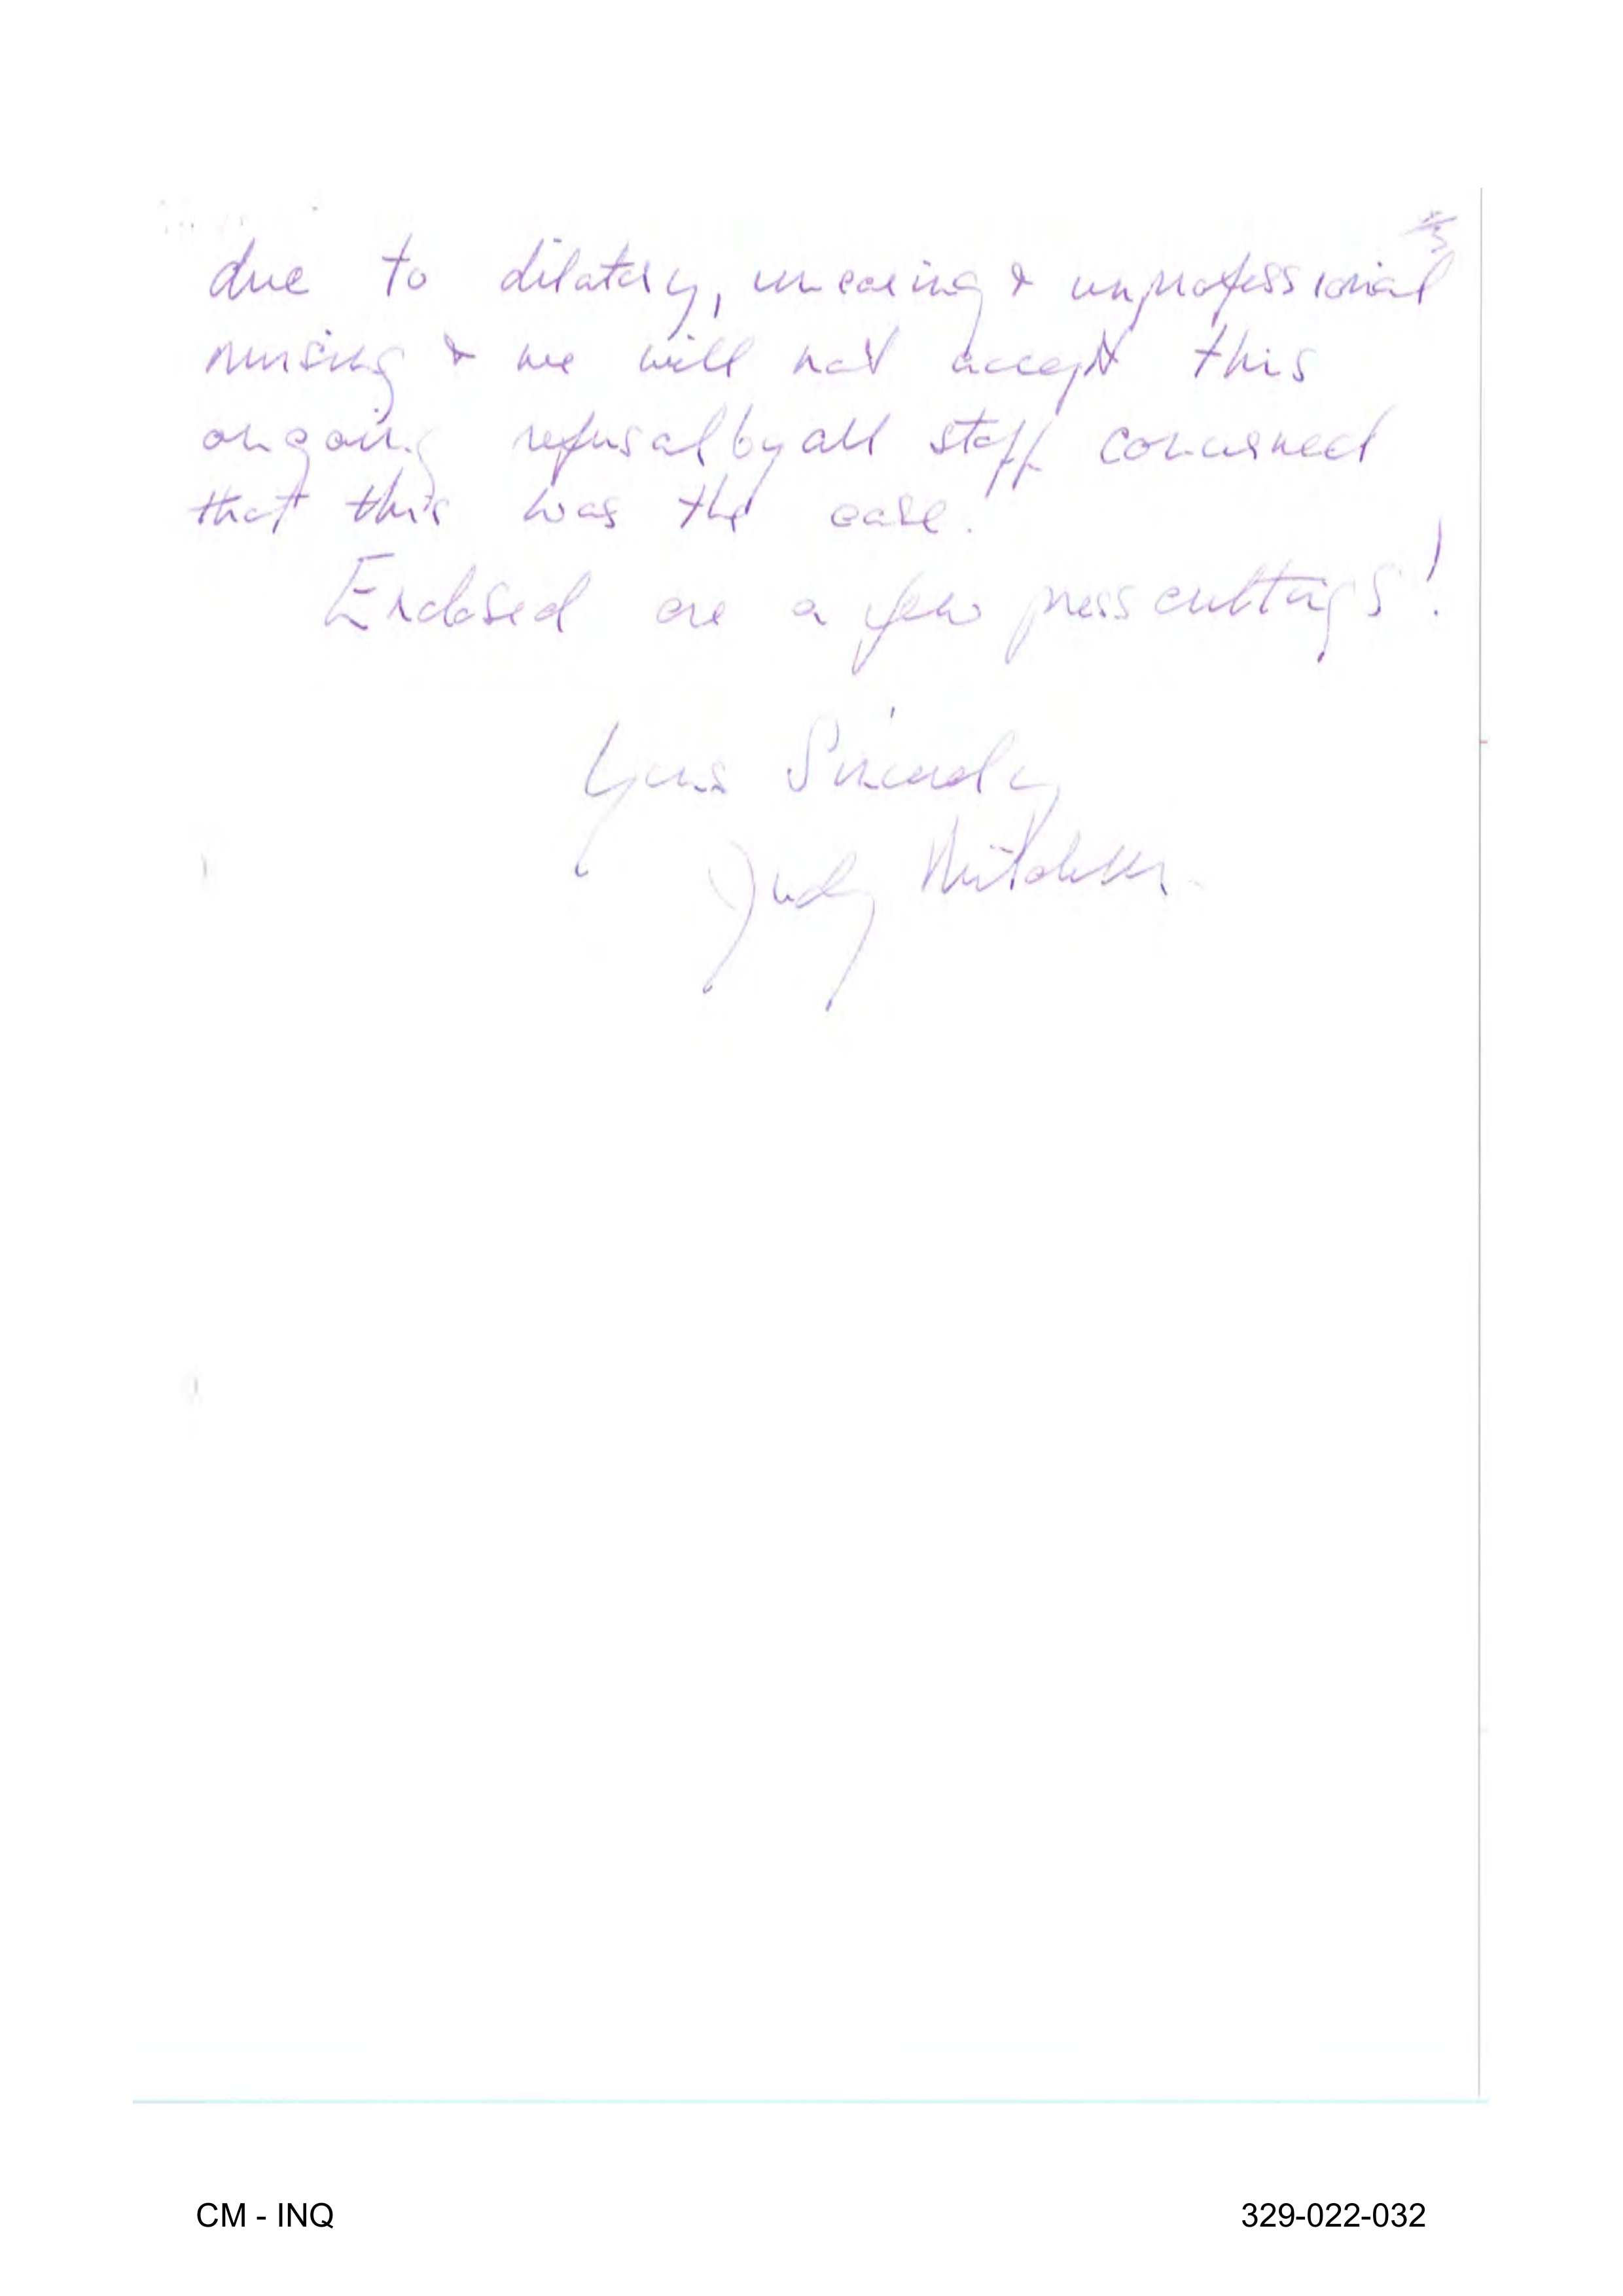 due to dilatory, uncaring & unprofessional
nursing & we will not accept this
ongoing refusal by all staff concerned
that this was the case.
Enclosed are a few press cuttings!
Yours Sincerely
Judy
CM - INQ
329-022-032